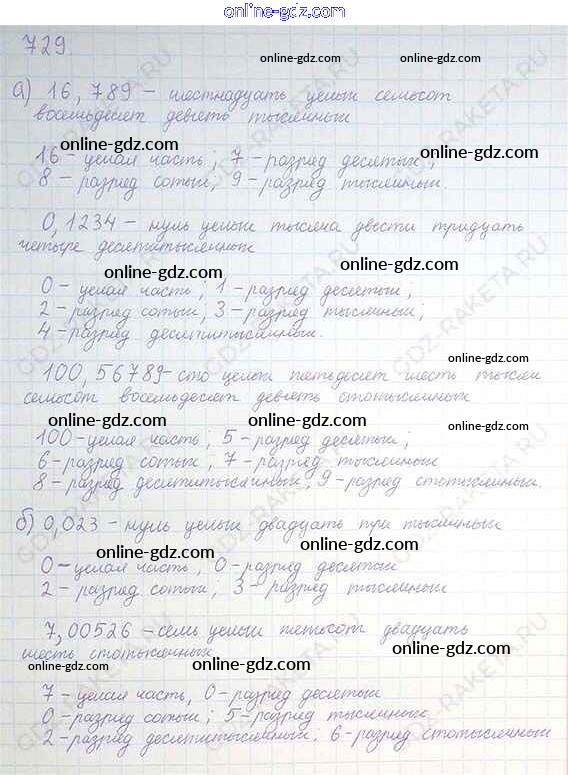 online-gdz.com
729.
online-gdz.com online-gdz.com
а) 16, 789 – шестнадцать целых семьсот
восемьдесят девять тысячных
online-gdz.com online-gdz.com
16 – целая часть; 7 – разряд десятых;
8 – разряд сотых; 9 – разряд тысячных.
0, 1234 – нуль целых тысяча двести тридцать
четыре десятитысячных
online-gdz.com online-gdz.com
0 – целая часть; 1 – разряд десятых;
2 – разряд сотых; 3 – разряд тысячных;
4 – разряд десятитысячных.
online-gdz.com
100, 56789 – сто целых пятьдесят шесть тысяч
семьсот восемьдесят девять стотысячных
online-gdz.com online-gdz.com online-gdz.com
100 – целая часть; 5 – разряд десятых;
6 – разряд сотых; 7 – разряд тысячных
8 – разряд десятитысячных; 9 – разряд стотысячных.
б) 0,023 – нуль целых двадцать три тысячных
online-gdz.com online-gdz.com
0 – целая часть, 0 – разряд десятых
2 – разряд сотых; 3 – разряд тысячных
7,00526 – семь целых пятьсот двадцать
шесть стотысячных
online-gdz.com online-gdz.com online-gdz.com
7 – целая часть, 0 – разряд десятых
0 – разряд сотых; 5 – разряд тысячных
2 – разряд десятитысячных; 6 – разряд стотысячных
GDZ-RAKETA.RU